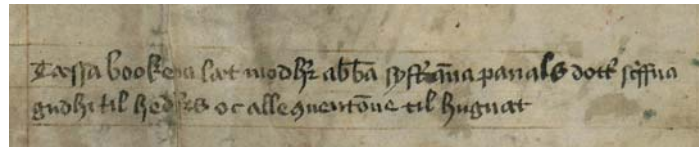 Tæssa bookena læt modhr abba systr āna panals dottr scriffua
gudhi til hedhrs oc alle quentōne til hugnat